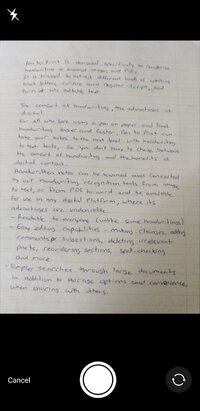 Pen to Print is designed specifically to recognize
handwriting in scanned images and PDFs.
It is trained to extract different kinds of writing
block letters, cursive and regular scripts, and
turn it into editable text.
The comfort of handwriting, the advantages of
digital
For all who love using a pen on paper and find
handwriting easier and faster, Pen to Print can
take your notes to the next level with handwriting
to text tools, so you don't have to choose between
the comfort of handwriting and the benefits of
digital content.
Handwritten notes can be scanned and converted
by our handwriting recognition tools from image
to text, or from PDF to word and be available
for use in any digital platform, where its
advantages are undeniable
- Readable to everyone (unlike some handwritings)
- Easy editing capabilities - making changes, adding
comments or suggestions, deleting irrelevant
parts, reordering sections, spell-checking
and more.
- Simpler searches through large documents
in addition to storage options and convenience
when sharing with others.
Cancel